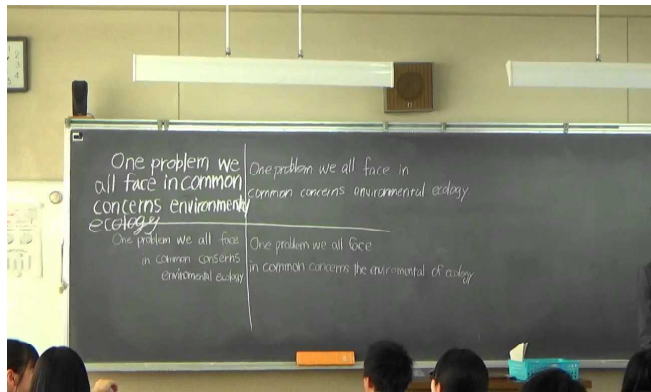 One problem we
all face in common
concerns environmental
ecology
One problem we all face in
common concerns environmental ecology
One problem we all face
in common conserns
enviromental ecology
One problem we all face
in common concerns the enviromental of ecology